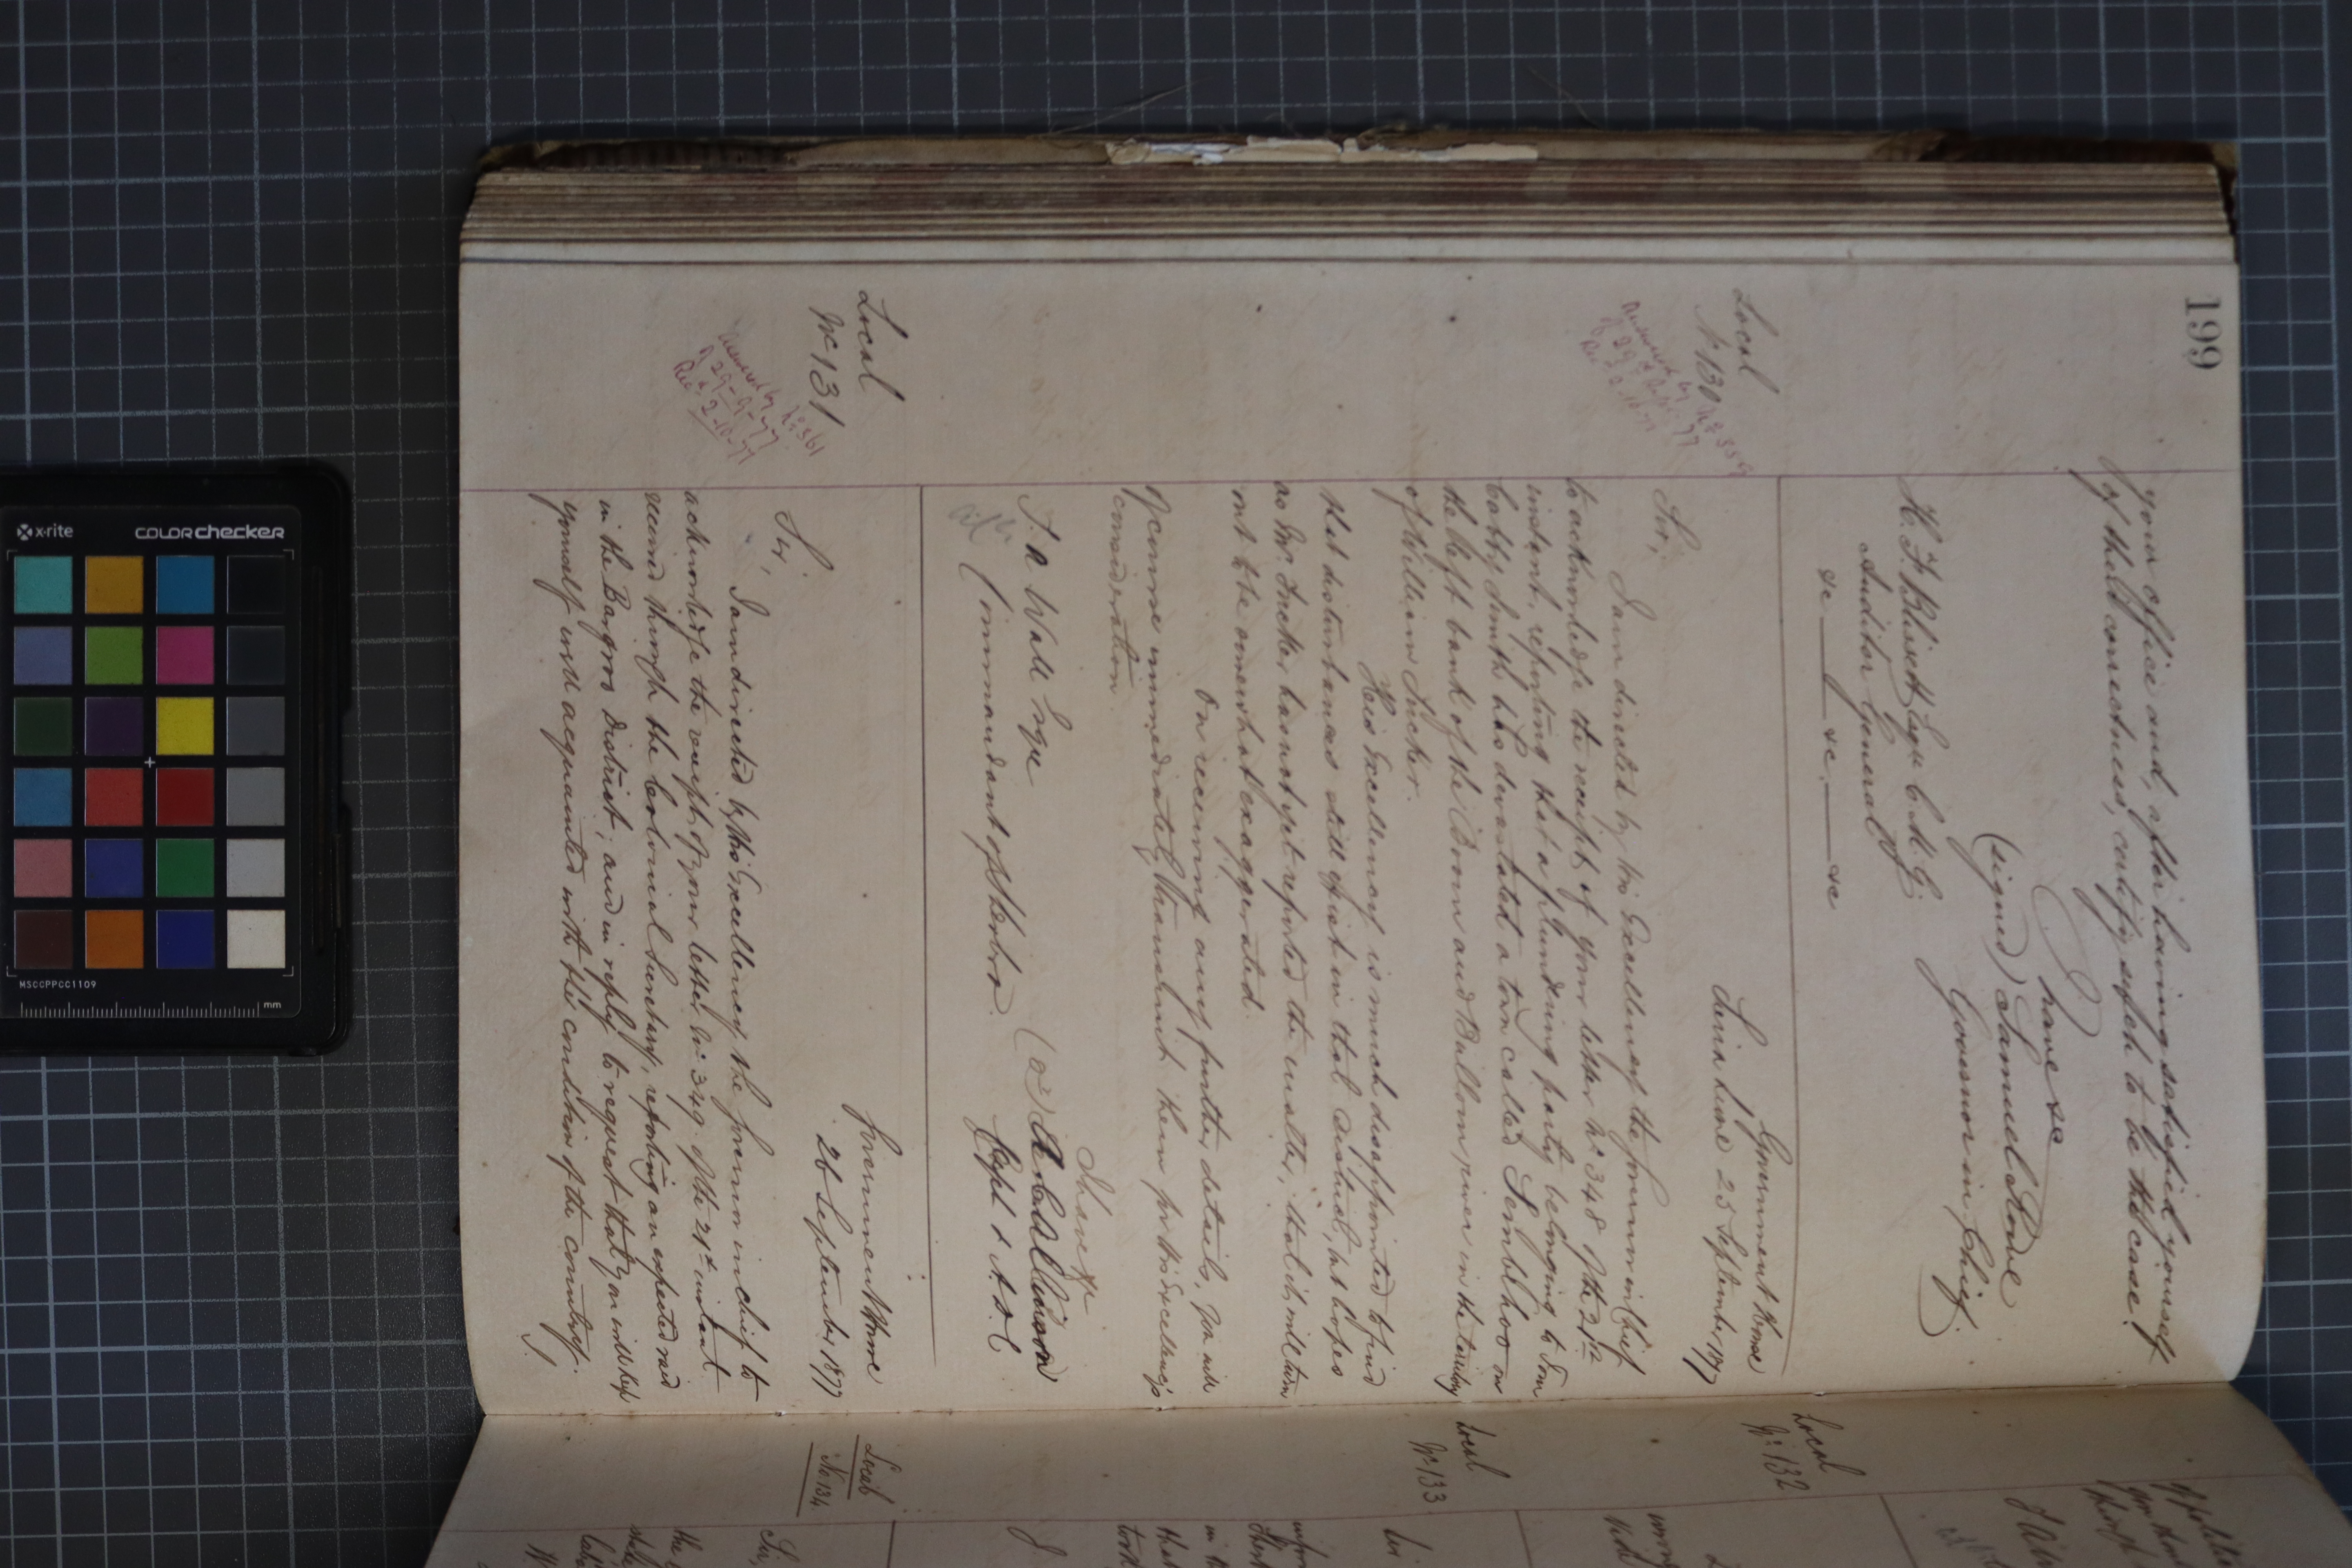 199
your office and, after having satisfied yourself
of their correctness, certify such to be the case.
I have &c
(signed) Samuel Rowe
Governor in Chief
H. F. Blissett Esqr C.M.G.
Auditor General
&c — &c — &c
Local
No 130
Answered by No 359
of 29 Sept. 77
Rec. 2-10-77
Government House
25 September 1877
Sir,
I am directed by His Excellency the Governor in Chief
to acknowledge the receipt of your letter No 348 of the 21st
instant, reporting that a plundering party belonging to Tom
Cabby Smith has devastated a town called Sembehoo on
the left bank of the Boom and Bullom river in the territory
of William Tucker.
His Excellency is much disappointed to find
that disturbances still exist in that district, but hopes
as Mr. Tucker has not yet reported the matter, that it will turn
out to be somewhat exaggerated.
On receiving any further details, you will
of course immediately transmit them for His Excellency's
consideration.
I have &c
J. A. Wall Esqre
Commandant of Sherbro.
Capt & A.D.C
Local
No 131
Answered by No 361
of 29-9-77
Rec. 2-10-77
Government House
26 September 1877
Sir,
I am directed by His Excellency the Governor in Chief to
acknowledge the receipt of your letter No 349 of the 21st instant
received through the Colonial Secretary, reporting an expected raid
in the Bargroo District; and in reply to request that you will keep
yourself well acquainted with the condition of the country.
Local
No 132
Local
No 133
Local
No 134
Sir,